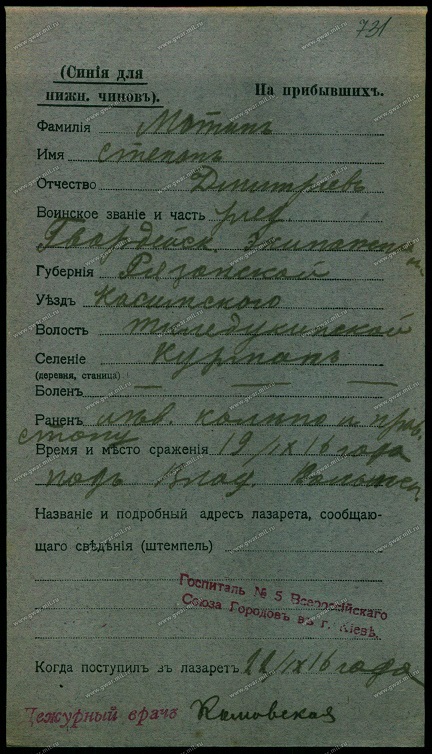 731
(Синія для
нижн. чиновъ).
На прибывшихъ.
Фамилія Мотинъ
Имя Степанъ
Отчество Дмитріевъ
Воинское званіе и часть ряд.
Гвардейск. Экипажа
Губернія Рязанской
Уѣздъ Касимского
Волость
Селеніе Курманъ
(деревня, станица)
Боленъ — — —
Раненъ лѣв. колѣно и прав.
стопу
Время и мѣсто сраженія 19/IX 16 года
подъ Влад. Волынск.
Названіе и подробный адресъ лазарета, сообщаю-
щаго свѣдѣнія (штемпель)
Госпиталь № 5 Всероссійскаго
Союза Городовъ въ г. Кіевѣ.
Когда поступилъ въ лазаретъ 22/IX 16 года
Дежурный врачъ Камовская
www.gwar.mil.ru